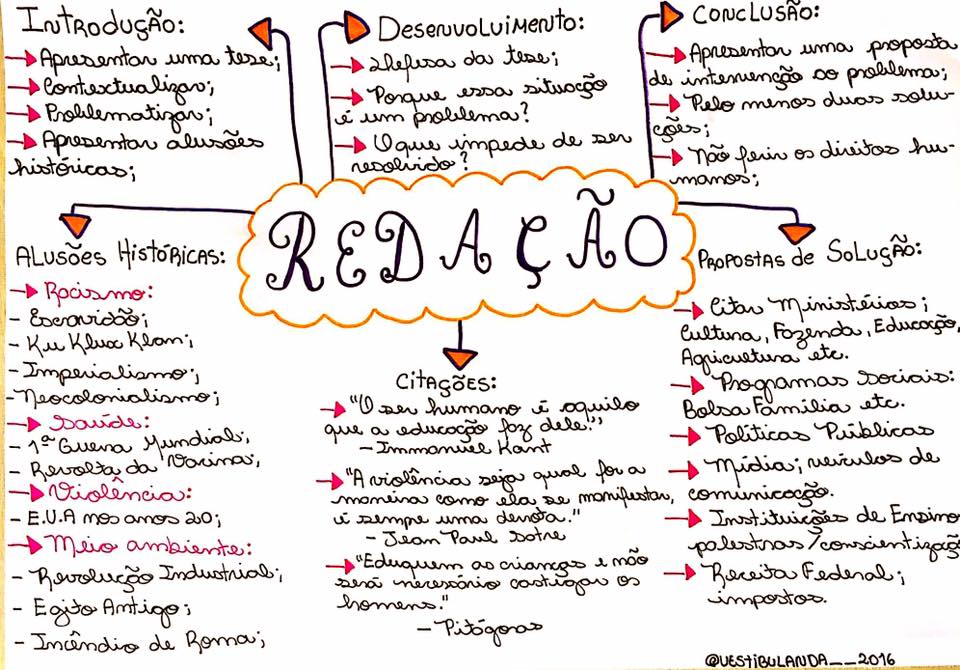 Introdução:
→ Apresentar uma tese;
→ Contextualizar;
→ Problematizar;
→ Apresentar alusões
históricas;
Desenvolvimento:
→ Defesa da tese;
→ Porque essa situação
é um problema?
→ O que impede de ser
resolvido?
Conclusão:
→ Apresentar uma proposta
de intervenção ao problema;
→ Pelo menos duas solu-
ções;
→ Não ferir os direitos hu-
manos;
REDAÇÃO
Alusões Históricas:
→ Racismo:
- Escravidão;
- Ku Klux Klan;
- Imperialismo;
- Neocolonialismo;
→ Saúde:
- 1ª Guerra Mundial;
- Revolta da Vacina;
→ Violência:
- E.U.A nos anos 20;
→ Meio ambiente:
- Revolução Industrial;
- Egito Antigo;
- Incêndio de Roma;
Citações:
→ "O ser humano é aquilo
que a educação faz dele!"
- Immanuel Kant
→ "A violência seja qual for a
maneira como ela se manifestar,
é sempre uma derrota."
- Jean Paul Satre
→ "Eduquem as crianças e não
será necessário castigar os
homens."
- Pitágoras
Propostas de Solução:
→ Citar Ministérios;
Cultura, Fazenda, Educação,
Agricultura etc.
→ Programas sociais:
Bolsa Família etc.
→ Políticas Públicas
→ Mídia; veículos de
comunicação.
→ Instituições de Ensino
palestras/conscientizaçã
→ Receita Federal;
impostos.
@VESTIBULANDA__2016